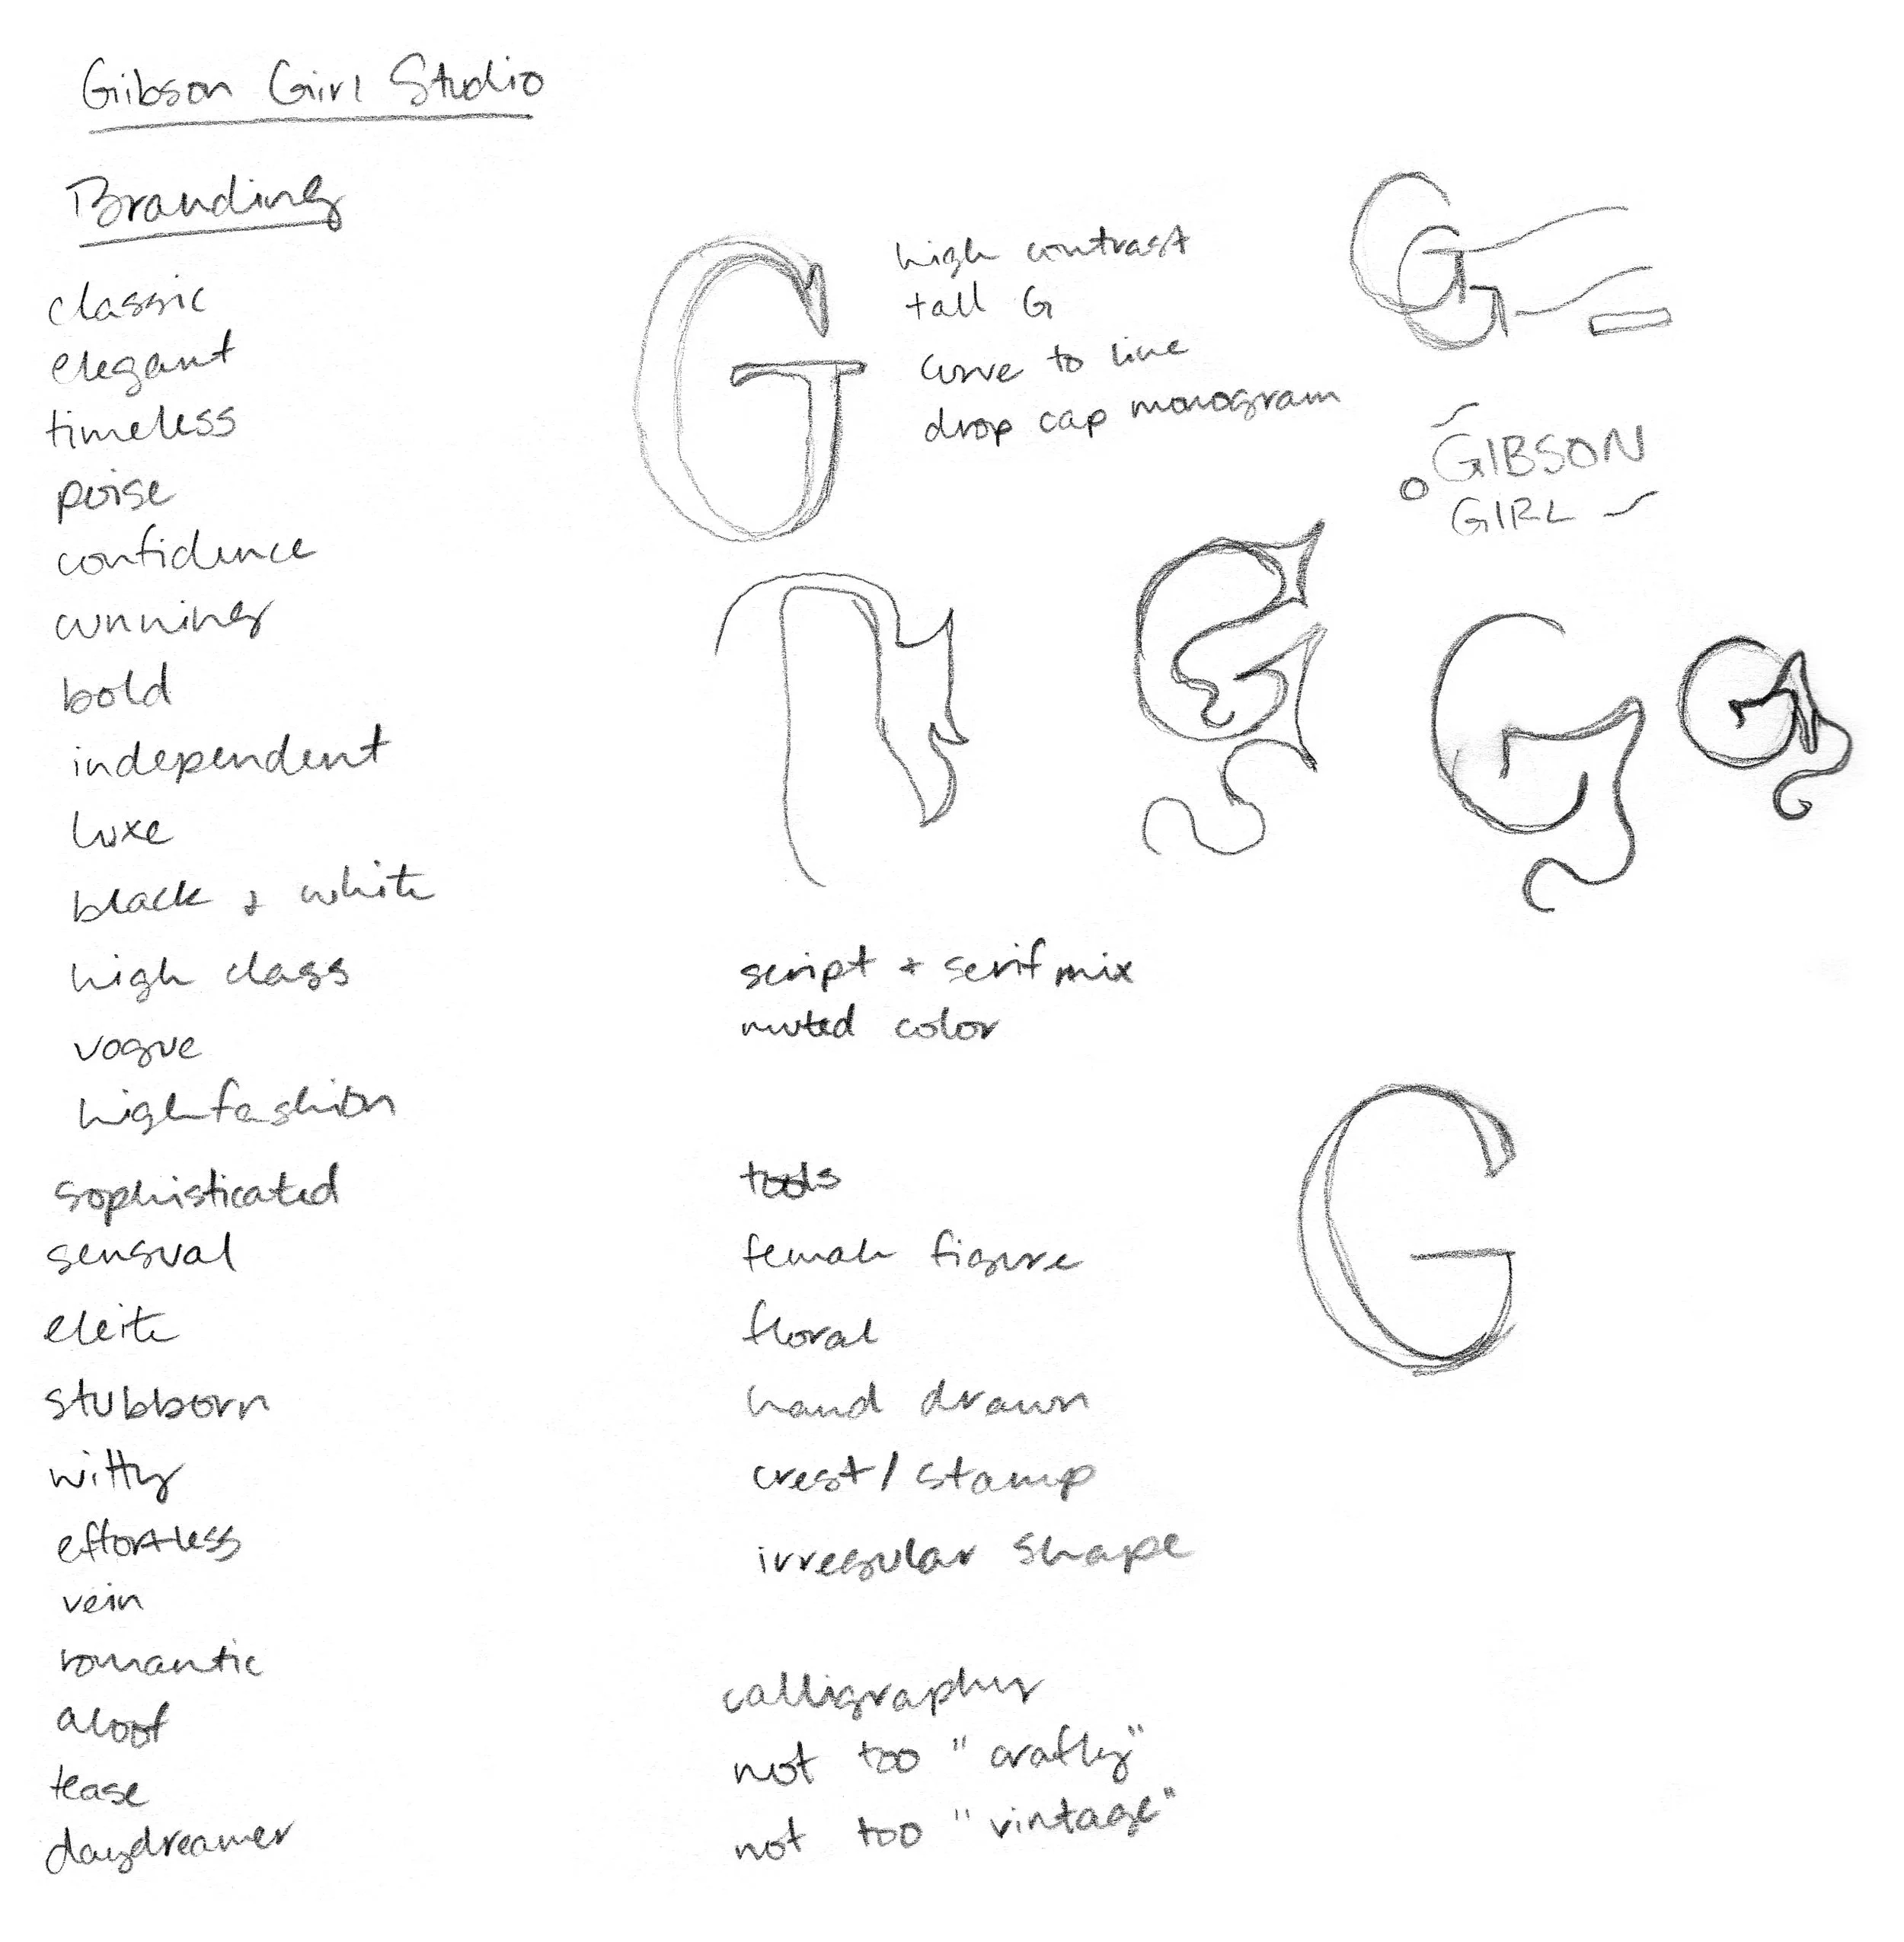 Gibson Girl Studio
Branding
classic
elegant
timeless
poise
confidence
cunning
bold
independent
luxe
black & white
high class
vogue
high fashion
sophisticated
sensual
eleite
stubborn
witty
effortless
vein
romantic
aloof
tease
daydreamer
G
high contrast
tall G
curve to line
drop cap monogram
GG
GIBSON
GIRL
G
G
G
script & serif mix
muted color
tools
female figure
floral
hand drawn
crest/stamp
irregular shape
G
calligraphy
not too "crafty"
not too "vintage"